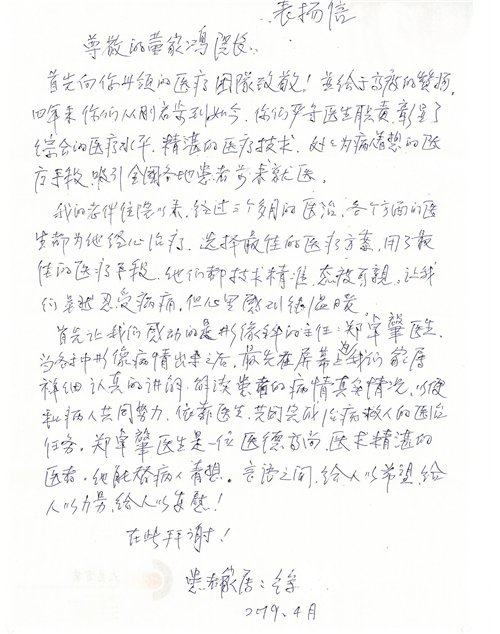 表扬信
尊敬的董家鸿院长:
首先向你带领的医疗团队致敬！并给于高度的赞扬,
四年来你们从刚启步到如今,你们严守医生职责,彰显了
综合的医疗水平,精湛的医疗技术,处处为病人着想的医
疗手段,吸引全国各地患者前来就医。
我的老伴住院以来,经过三个多月的医治,各个方面的医
生都为他经心治疗,选择最佳的医疗方案,用了最
佳的医疗手段,他们都技术精准,态度可亲,让我
们虽然忍受病痛,但心里感到很温暖
首先让我们感动的是影像科的主任:郑卓肇医生,
当各种影像病情出来之后,最先在屏幕边给我们家属
详细认真的讲解,解读患者的病情真实情况,以便
和病人共同努力,依靠医生,共同完成治病救人的医治
任务。郑卓肇医生是一位医德高尚,医术精湛的
医者。他能替病人着想。言语之间,给人以希望,给
人以力量,给人以安慰！
在此拜谢！
患者家属:
2019.4月